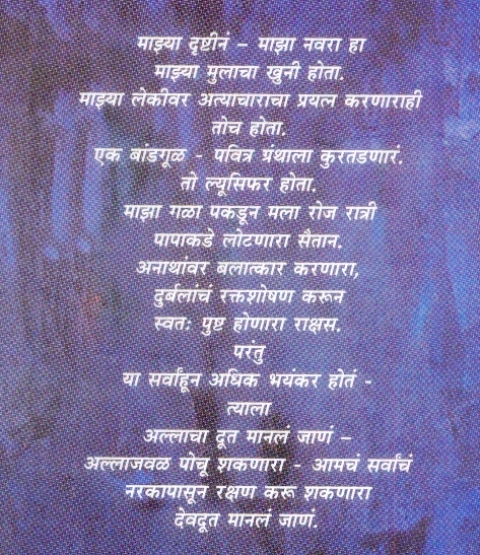 माझ्या दृष्टीनं – माझा नवरा हा
माझ्या मुलाचा खुनी होता.
माझ्या लेकीवर अत्याचाराचा प्रयत्न करणाराही
तोच होता.
एक बांडगूळ - पवित्र ग्रंथाला कुरतडणारं.
तो ल्यूसिफर होता.
माझा गळा पकडून मला रोज रात्री
पापाकडे लोटणारा सैतान.
अनाथांवर बलात्कार करणारा,
दुर्बलांचं रक्तशोषण करून
स्वतः पुष्ट होणारा राक्षस.
परंतु
या सर्वांहून अधिक भयंकर होतं -
त्याला
अल्लाचा दूत मानलं जाणं –
अल्लाजवळ पोचू शकणारा - आमचं सर्वांचं
नरकापासून रक्षण करू शकणारा
देवदूत मानलं जाणं.